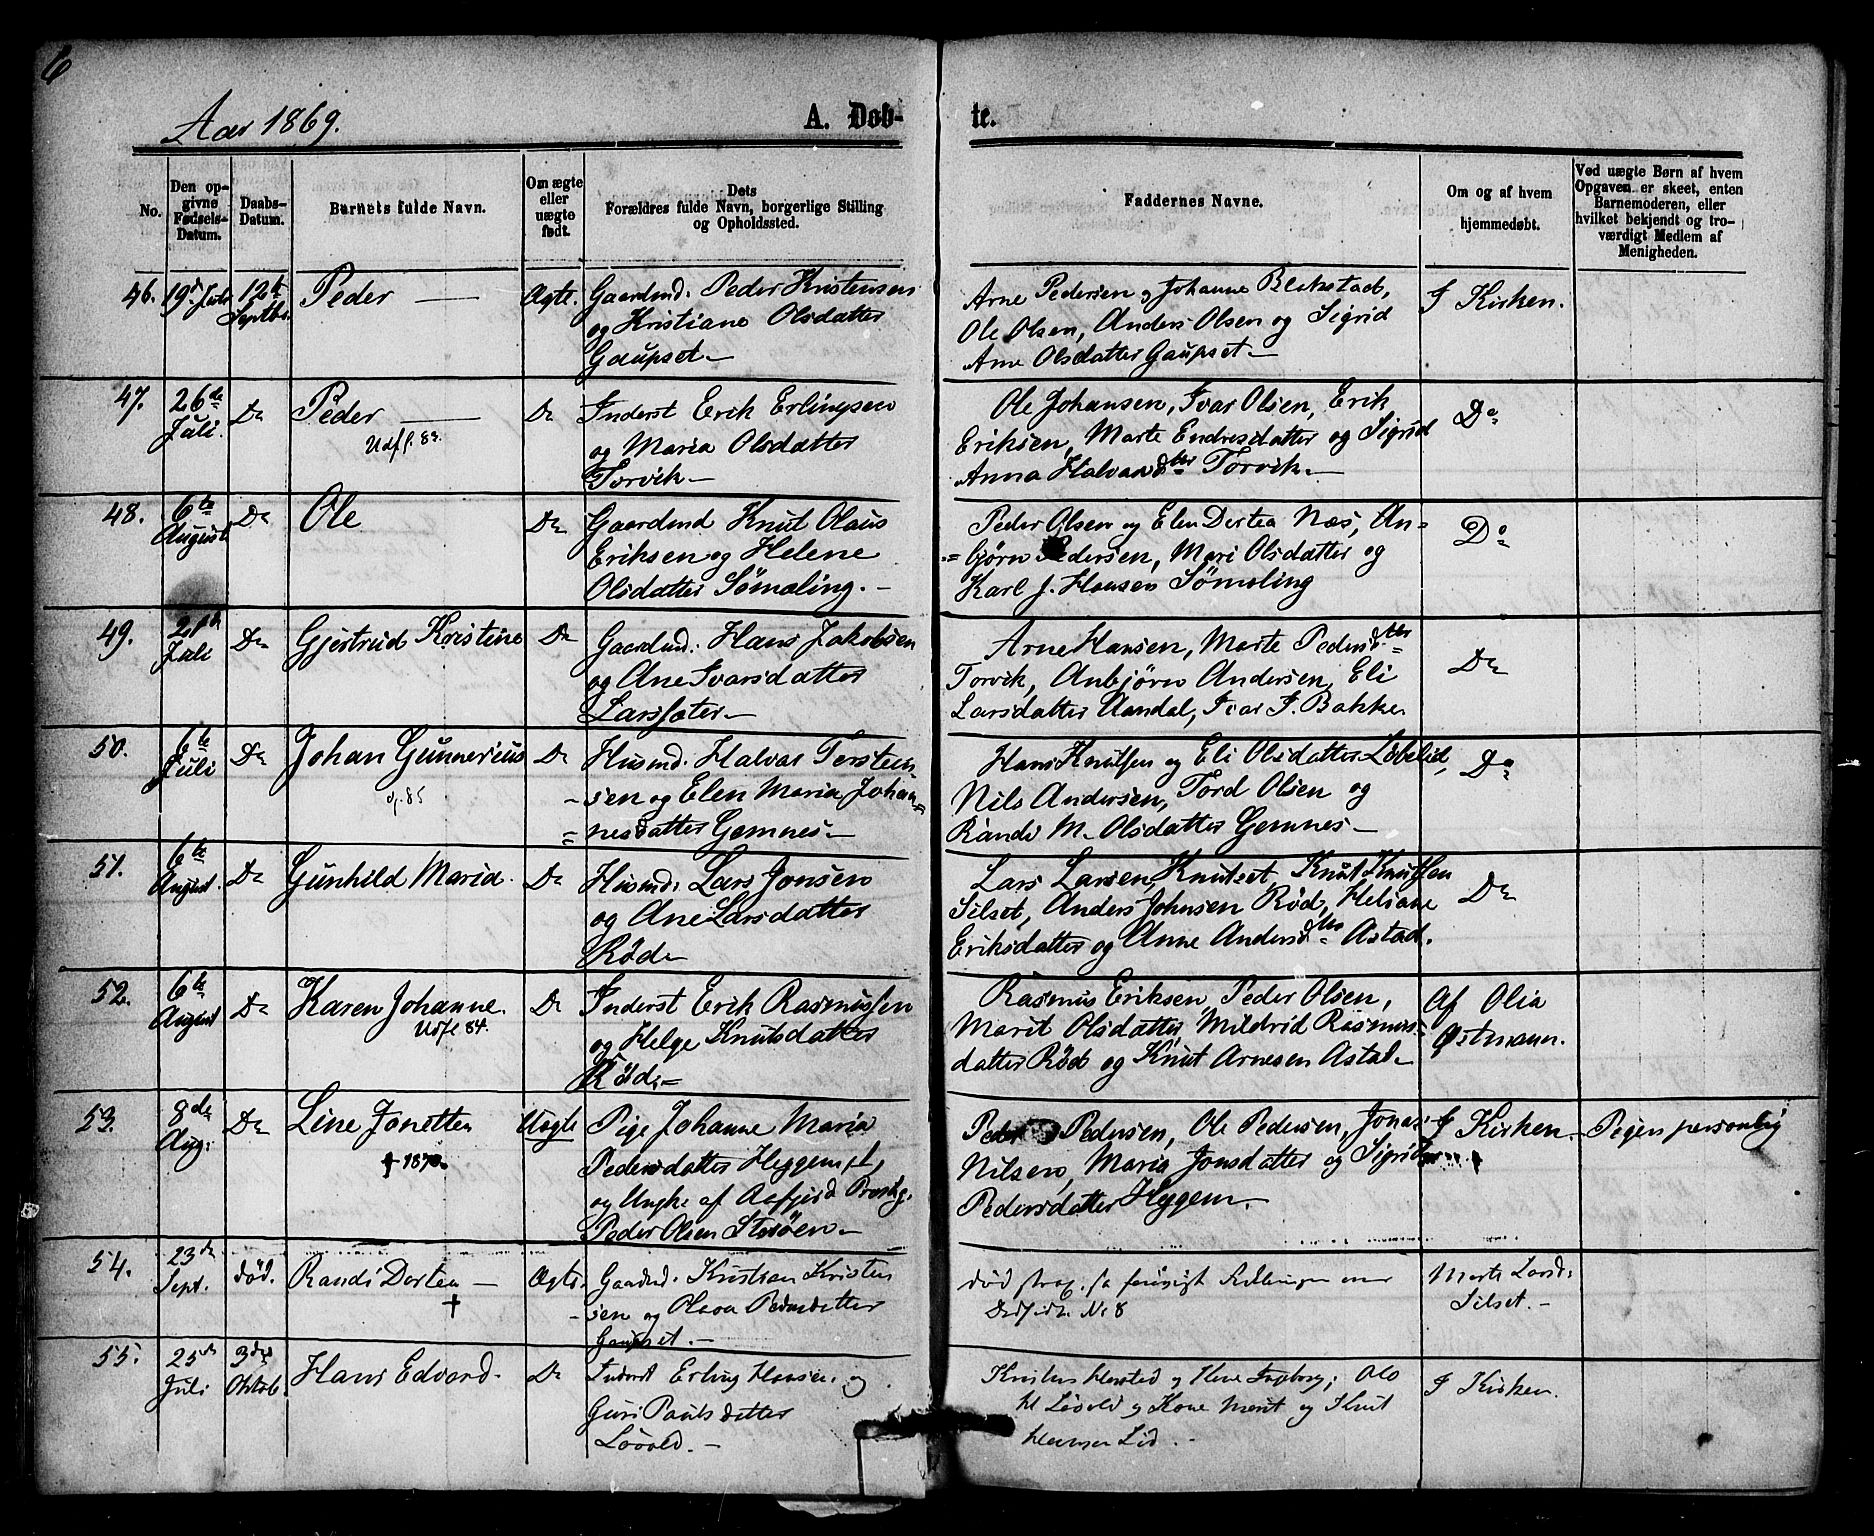 6
Aar 1869.
A. Døb-
te.
No.
Den op-
givne
Fødsels-
Datum.
Daabs-
Datum.
Barnets fulde Navn.
Om ægte
eller
uægte
født.
Dets
Forældres fulde Navn, borgerlige Stilling
og Opholdssted.
Faddernes Navne.
Om og af hvem
hjemmedøbt.
Ved uægte Børn af hvem
Opgaven er skeet, enten
Barnemoderen, eller
hvilket bekjendt og tro-
værdigt Medlem af
Menigheden.
46.
19de Juli
12te
Septbr.
Peder
Ægte.
Gaardmd. Peder Kristensen
og Kristiane Olsdatter
Gaupset
Arne Pedersen og Johanne Blekstad,
Ole Olsen, Anders Olsen og Sigrid
Arne Olsdatter Gaupset
I Kirken.
47.
26de
Juli.
Do
Peder
Udfl. 83.
Do
Inderst Erik Erlingsen
og Maria Olsdatter
Torvik
Ole Johansen, Ivar Olsen, Erik
Eriksen, Marte Endresdatter og Sigrid
Anna Halvardsdtter Torvik.
Do
48.
6te
August
Do
Ole
Do
Gaardmd Knut Olaus
Eriksen og Helene
Olsdatter Sömöling.
Peder Olsen og Elen Dortea Næs, An-
=bjørn Pedersen, Mari Olsdatter og
Karl J. Hansen Sömöling
Do
49.
21de
Juli
Do
Gjertrud Kristine
Do
Gaardmd. Hans Jakobsen
og Ane Ivarsdatter
Larssæter
Arne Hansen, Marte Pedersdtter
Torvik, Anbjørn Andersen, Eli
Larsdatter Aandal, Ivar I. Bakke.
Do
50.
6te
Juli
Do
Johan Gunnerius
Do
Husmd. Halvar Torstein-
=sen og Elen Maria Johan-
=nesdatter Gemnes
Hans Knutsen og Eli Olsdatter Löbelid,
Nils Andersen, Tord Olsen og
Randi M. Olsdatter Gemnes
Do
51.
6te
August.
Do
Gunhild Maria.
Do
Husmd. Lars Jonsen
og Ane Larsdatter
Röd
Lars Larsen Knutset, Knut Knutsen
Silset, Anders Johnsen Röd, Heliane
Eriksdatter og Anne Andersdtter Astad.
Do
52.
6te
August
Do
Karen Johanne.
Udfl. 84.
Do
Inderst Erik Rasmussen
og Helge Knutsdatter
Röd.
Rasmus Eriksen, Peder Olsen,
Marit Olsdatter, Mildrid Rasmus-
datter Röd og Knut Arnesen Astad
Af Olia
Østmann.
53.
8de
Aug.
Do
Line Jonetta
† 1870.
Uægte
Pige Johanne Maria
Pedersdatter Heggem
og Ungk. af Aafjord Prestg.
Peder Olsen Storöen
Peder Pedersen, Ole Pedersen, Jonas
Nilsen, Maria Jonsdatter og Sigrid
Pedersdatter Heggem.
I Kirken
Pigen personlig
54.
23de
Sept.
død.
Randi Dortea
†
Ægte
Gaardmd. Kristian Kristen
-sen og Olava Pedersdatter
Gaupset.
død
No 8
Marte Larsd.
Silset.
55.
25de
Juli
3die
Oktob.
Hans Edvard.
Do
Inderst Erling Hansen og
Guri Paulsdatter
Lövold.
og Knut
Hansen Lid.
I Kirken.